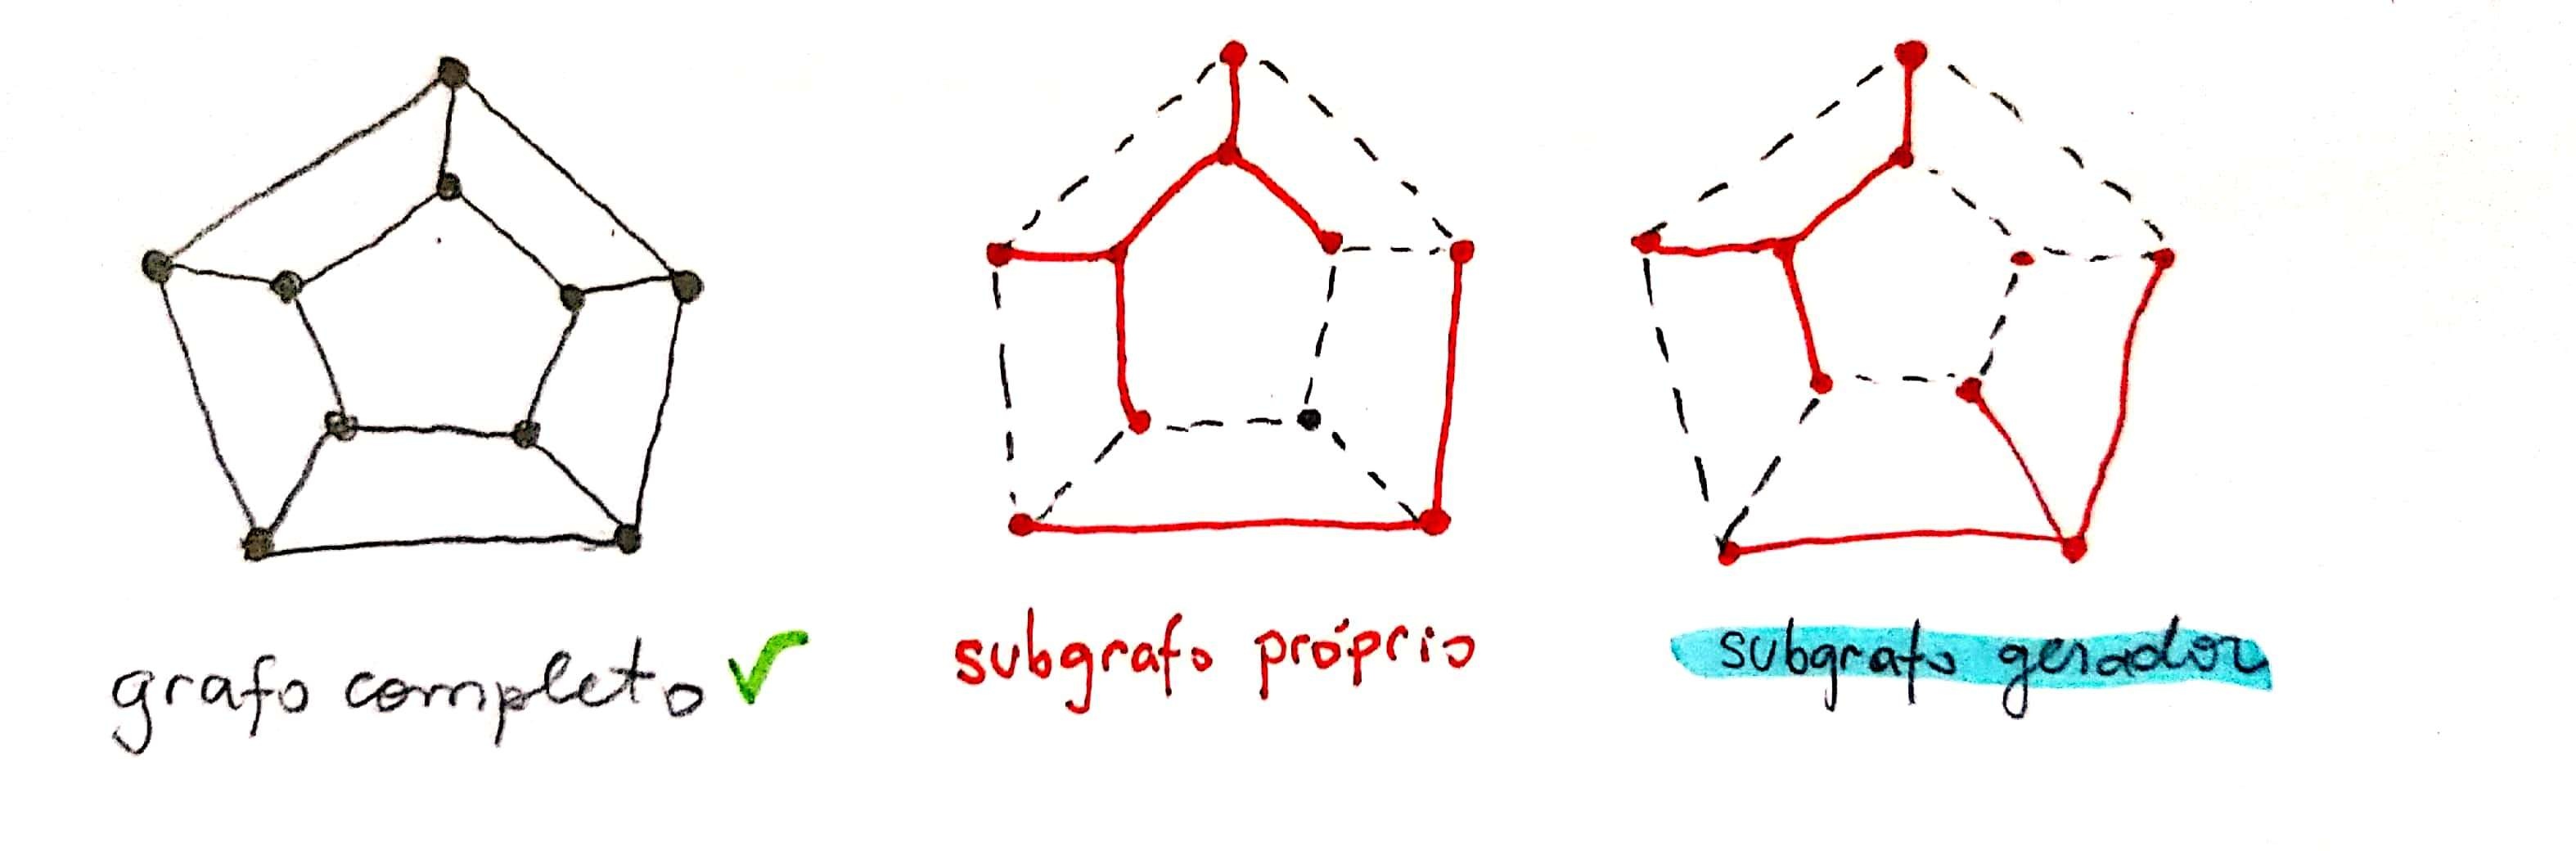 grafo completo
subgrafo próprio
subgrafo gerador